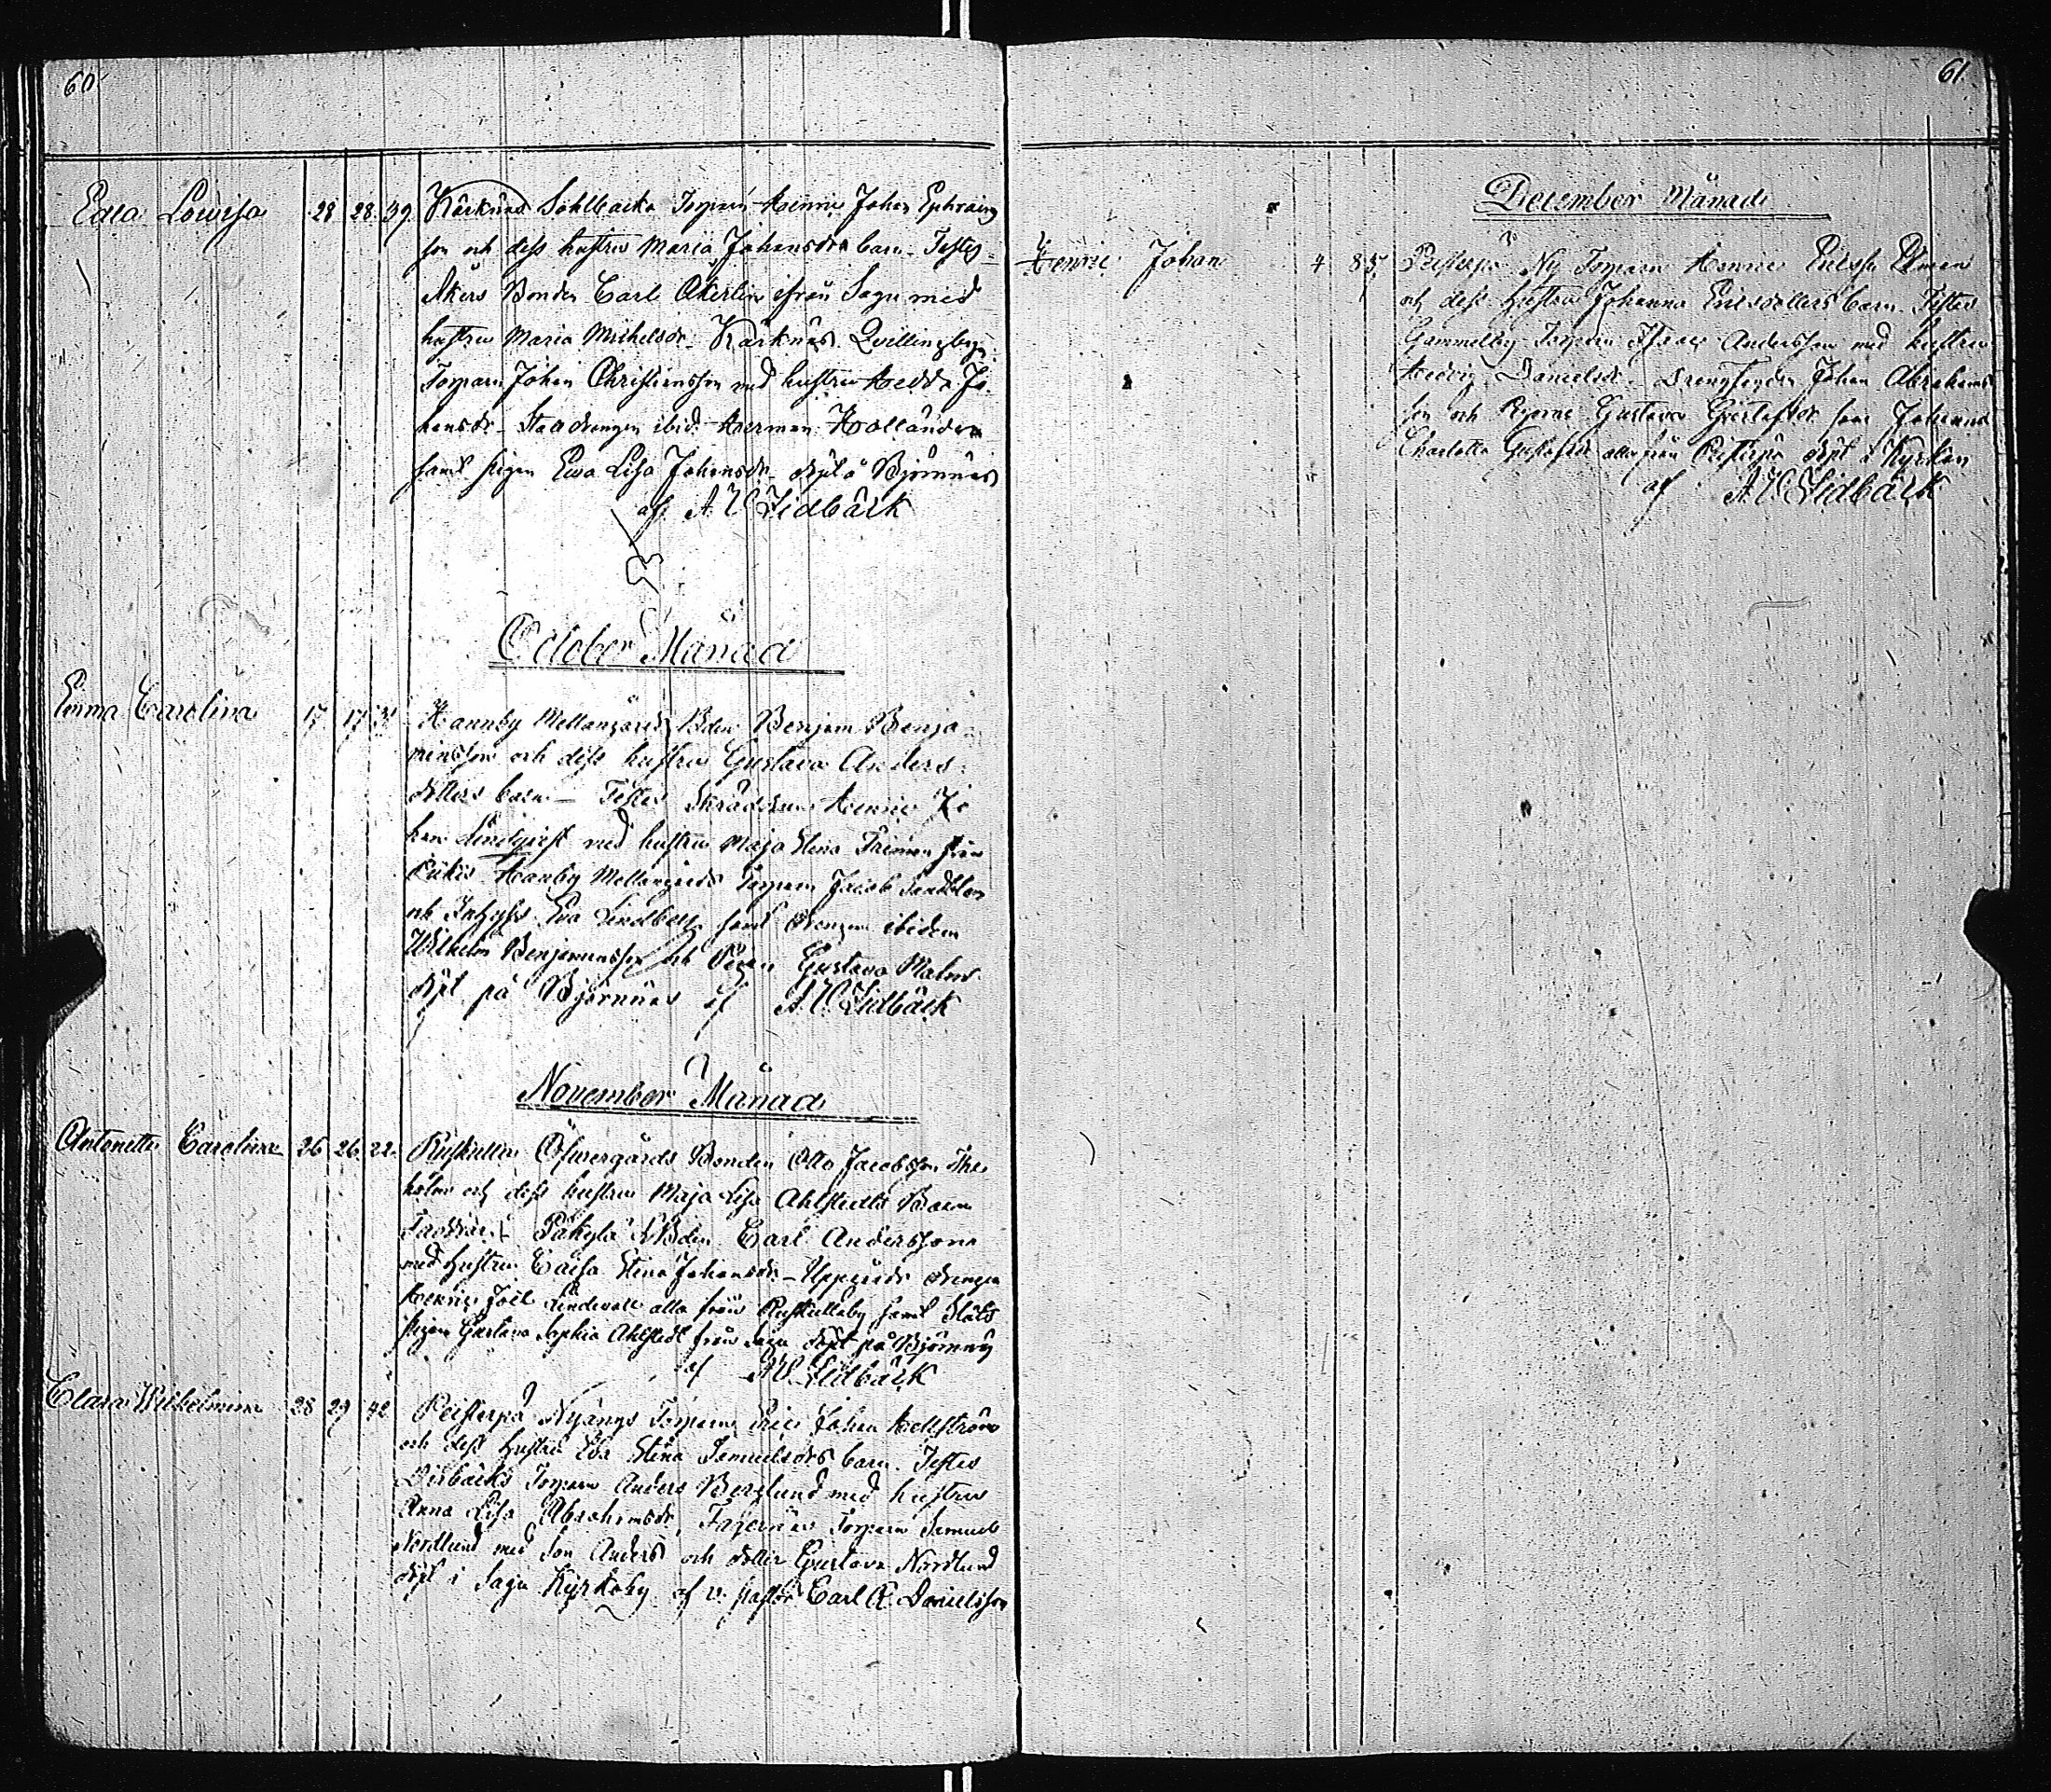 60
Edla Lowisa 28 28 39 Karknäs Sohlbacka Torparn Henric Johan Ephraims
son och dess hustru Maria Johansdrs barn. Testes
Åkers Bonden Carl Åkerlin ifrån Sagu med
hustru Maria Michelsdr. Karknäs Qvillingbergs
Torparn Johan Christiansson med hustru Hedda Jo-
hansdr. Stalldrengen ibid. Herman Hollander
samt pigan Ewa Lisa Johansdr. döpt å Björnnäs
af A W Lidbäck
October Månad
Emma Carolina 17 17 Hannby Mellangårds Bden Benjam Benja-
minsson och dess hustru Gustava Anders-
dotters barn — Testes Skräddaren Henric Jo
han Lindqvist med hustru Maja Stina från
Pukis Hanby Mellangårds Torparn Jacob Sandblom
och Inhyses Eva Lindbert samt drengen ibidem
Wilhelm Benjaminsson och Pigan Gustava Malm-
döpt på Björnnäs af A. W. Lidbäck
November Månad
Antonette Carolina 26 26 22 Ruskulla Öfvergårds Bonden Otto Jacobsson
holm och dess hustru Maja Lisa Ahlstedts Barn
Faddrar. Påkylä Bden Carl Andersson
med hustru Caisa Stina Johansdr. Uppgårds drengen
Henric Joel Lindevall alla från Ruskullaby samt
pigan Gustava Sophia Ahlstedt från Sagu döpt på Björnnäs
af A W Lidbäck
Clara Wilhelmina 28 29 42 Peisterpå Nyängs Torparn Eric Johan Hellström
och dess hustru Eva Stina Samuelsdrs barn. Testes
Torparn Anders Berglund med hustru
Anna Lisa Abrahamsdr, Fagernäs Torparn Samuel
Nordlund med son Anders och dotter Gustava Nordlund
döpt i Sagu Kyrkoby af v. pastor Carl A. Danielsson
61.
December Månad
Henric Johan 4 8 Peisterpå Ny Torparn Henric Ericsson Ekman
och dess hustru Johanna Ericsdotters barn. Testes
Gammelby Torparn Isaac Andersson med hustru
Hedvig Danielsdr. Drengen Johan Abrahams
son och Pigorne Gustava Gustafsdr samt Johanna
Charlotta Gustafsdr alla från Peisterpå döpt i Kyrkan
af A W Lidbäck